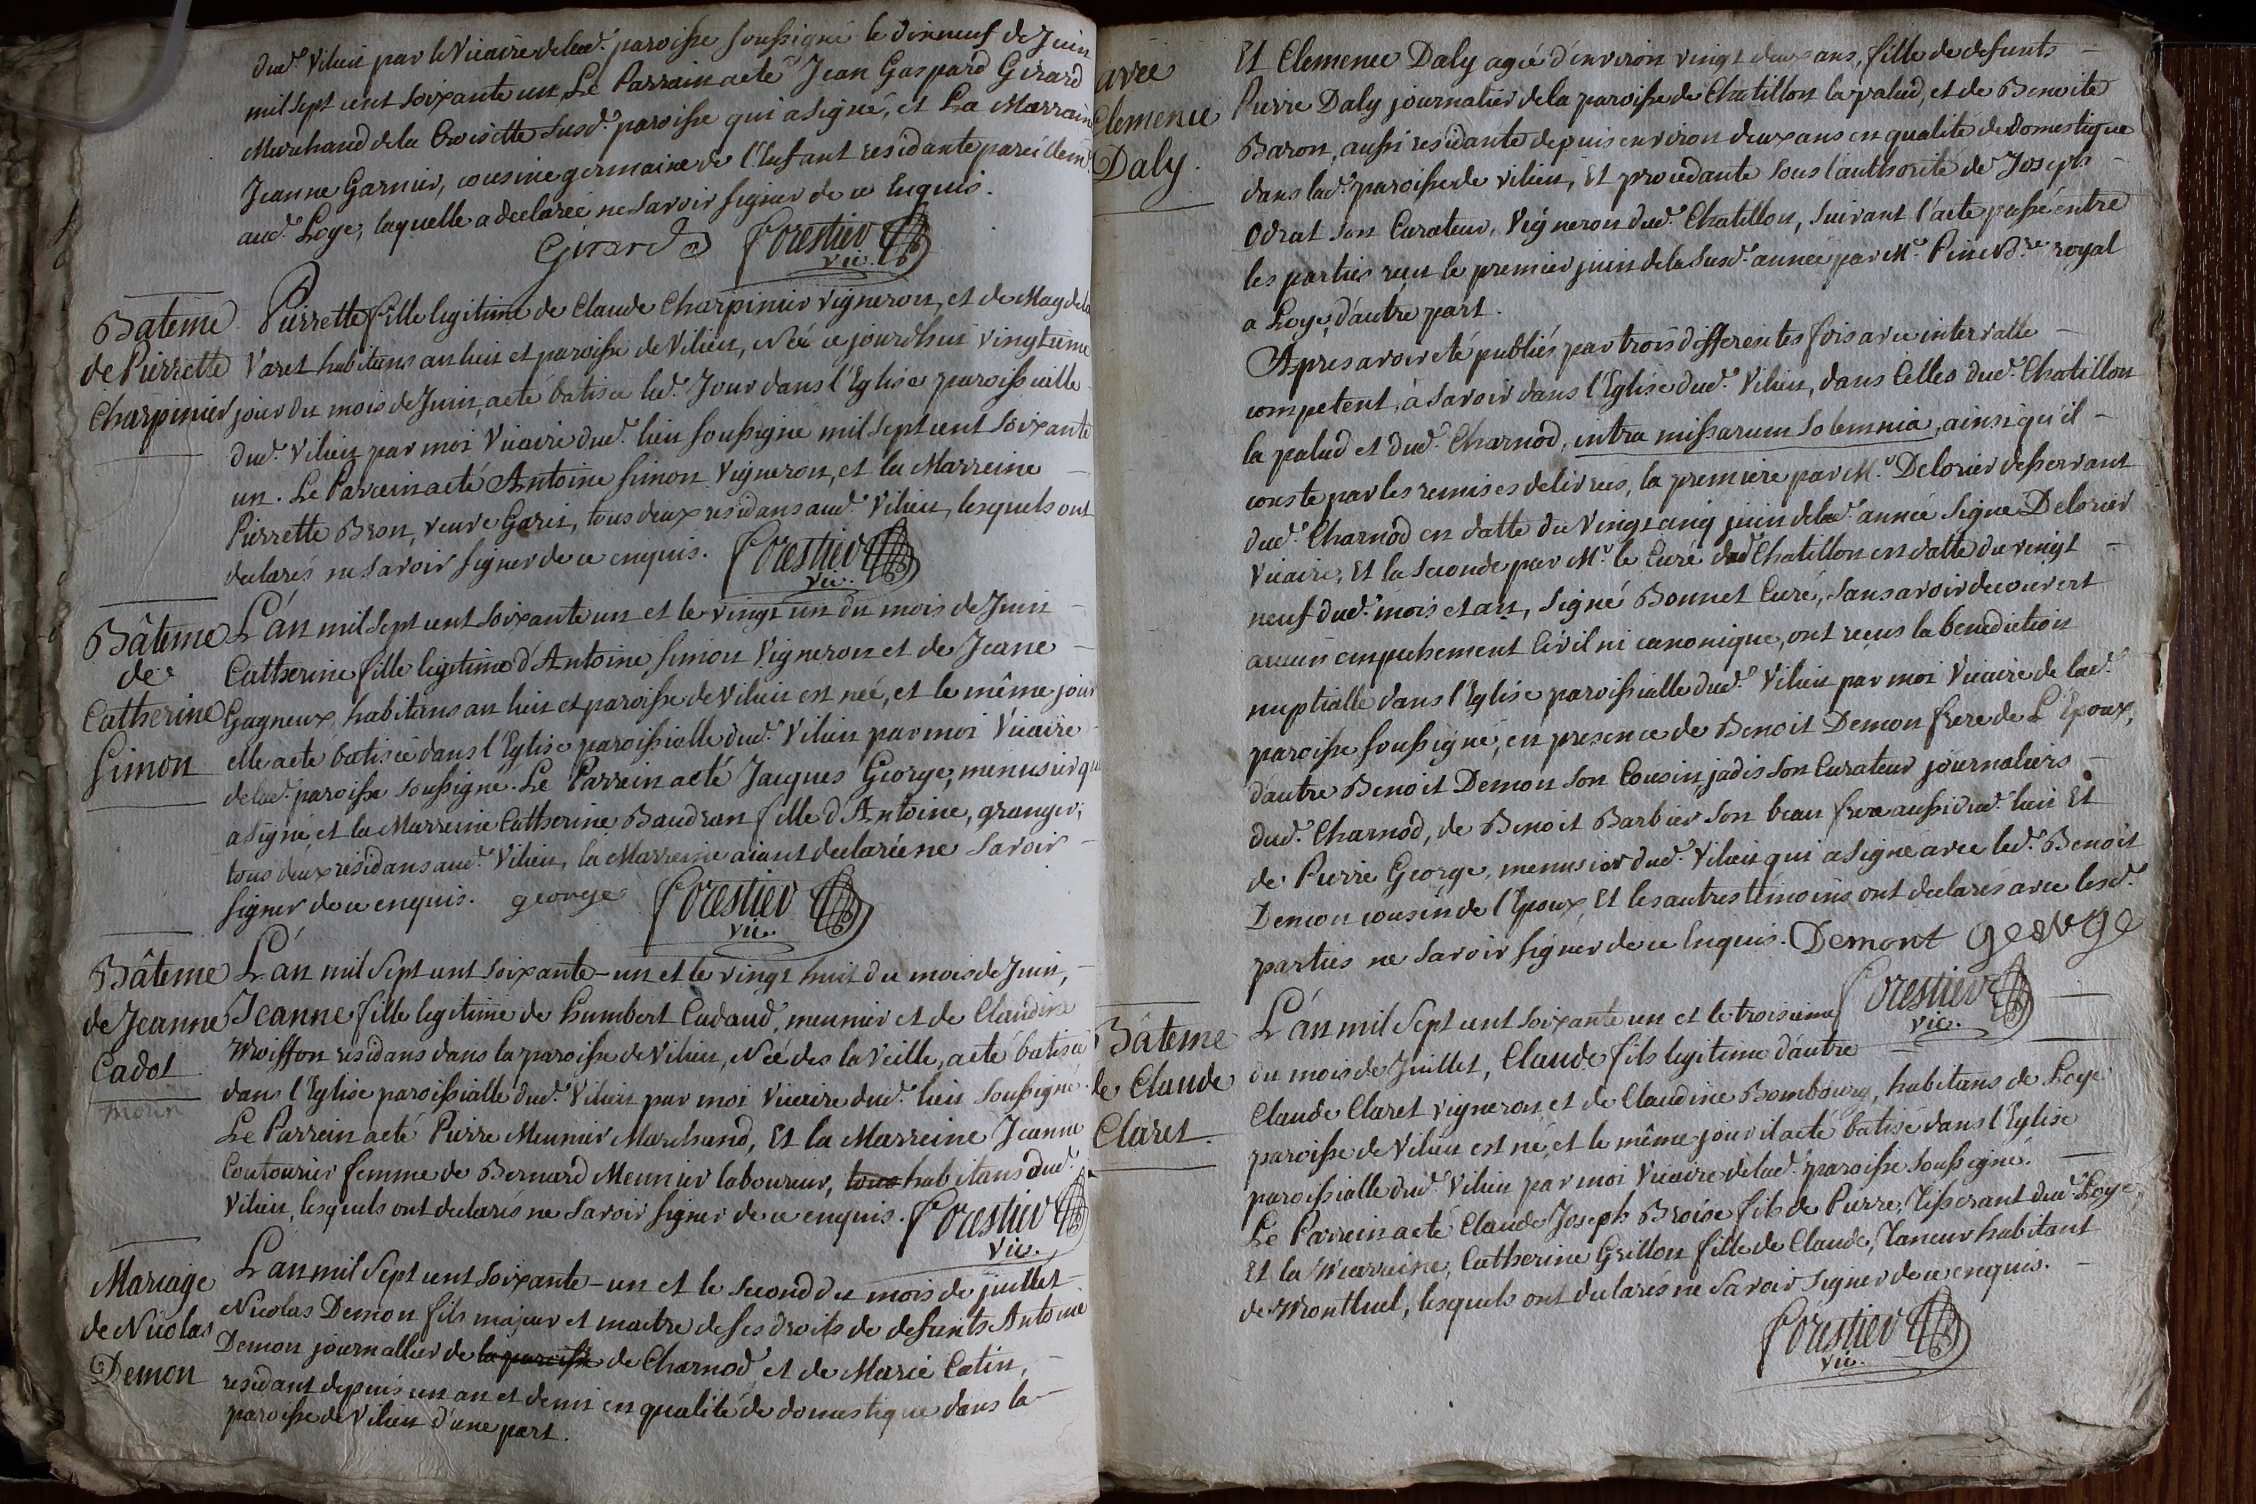 dud. Vilieu par le Vicaire de lad. paroisse soussigné le dixneuf de Juin
mil sept cent soixante un, Le Parrain a eté Jean Gaspard Girard
Marchand de la Croisette susd. paroisse qui a signé, et La Marraine
Jeanne Garnier, cousine germaine de l'Enfant residante pareillemt.
aud. Loye, laquelle a declarée ne savoir signer de ce Enquis.
Girard Forestier
vic.
Bâteme
de Pierrette
Charpinier
Pierrette fille legitime de Claude Charpinier vigneron, et de Magdela
Varet habitans au lieu et paroisse de Vilieu, Née ce jourdhui vingtieme
jour du mois de Juin, a eté batisée led. Jour dans l'Eglise paroissialle
dud. Vilieu par moi Vicaire dud. lieu soussigné mil sept cent soixante
un. Le Parrein a eté Antoine Simon Vigneron, et la Marreine
Pierrette Bron, veuve Garin, tous deux residans aud. Vilieu, lesquels ont
declarés ne savoir signer de ce enquis. Forestier
vic.
Bâteme
de
Catherine
Simon
L'an mil sept cent soixante un et le vingt un du mois de Juin
Catherine fille legitime d'Antoine Simon Vigneron et de Jeane
Gagneux, habitans au lieu et paroisse de Vilieu est née, et le même jour
elle a eté batisée dans l'Eglise paroissialle dud. Vilieu par moi Vicaire
de lad. paroisse soussigné. Le Parrein a eté Jacques George, menusier qui
a signé, et la Marreine Catherine Baudran fille d'Antoine, granger,
tous deux residans aud. Vilieu, la Marreine aiant declarée ne savoir
signer de ce enquis. george Forestier
vic.
Bâteme
de Jeanne
Cadot
morte
L'an mil sept cent soixante-un et le vingt huit du mois de Juin,
Jeanne fille legitime de humbert Cadaud, meunier et de Claudine
Moiffon residans dans la paroisse de Vilieu, Née dès la veille, a eté batisée
dans l'Eglise paroissialle dud. Vilieu par moi Vicaire dud. lieu soussigné.
Le Parrein a eté Pierre Meunier Marchand, Et la Marreine Jeanne
Couturier femme de Bernard Meunier laboureur, tous habitans dud.
Vilieu, lesquels ont declarés ne savoir signer de ce enquis. Forestier
vic.
Mariage
de Nicolas
Demon
L'an mil sept cent soixante-un et le second du mois de juillet
Nicolas Demon fils majeur et maitre de ses droits de defunts Antoine
Demon journallier de la paroisse de Charnod et de Marie Catin,
residant depuis un an et demi en qualité de domestique dans la
paroisse de Vilieu d'une part.
avec
Clemence
Daly.
Et Clemence Daly agée d'environ vingt deux ans, fille de defunts
Pierre Daly journalier de la paroisse de Chatillon la palud, et de Benoite
Baron, aussi residante depuis environ deux ans en qualité de domestique
dans lad. paroisse de vilieu, Et procedante sous l'authorité de Joseph
Odrat son Curateur, Vigneron dud. Chatillon, suivant l'acte passé entre
les parties reçu le premier juin de la susd. année par Me. Pine Nre. royal
a Loye, d'autre part.
Apres avoir eté publiés par trois differentes fois avec intervalle
competent, à savoir dans l'Eglise dud. Vilieu, dans Celles dud. Chatillon
la palud et dud. Charnod, intra missarum solemnia, ainsi qu'il
conste par les remises delivrées, la premiere par Mr. Delorier desservant
dud. Charnod en datte du Vingt cinq juin de lad. année signé Delorier
Vicaire, Et la seconde par Mr. le Curé dud. Chatillon en datte du vingt
neuf dud. mois et an, signé Bonnet Curé, sans avoir decouvert
aucun empechement Civil ni canonique, ont reçus la benediction
nuptialle dans l'Eglise paroissialle dud. Vilieu par moi Vicaire de lad.
paroisse soussigné, en presence de Benoit Demon frere de L'Epoux,
d'autre Benoit Demon son Cousin, jadis son Curateur journaliers
dud. Charnod, de Benoit Barbier son beau frere aussi dud. lieu Et
de Pierre George, menusier dud. Vilieu qui a signé avec led. Benoit
Demon cousin de l'Epoux, Et les autres temoins ont declarés avec lesd.
parties ne savoir signer de ce Enquis. Demont george
Forestier
vic.
Bâteme
de Claude
Claret.
L'an mil sept cent soixante un et le troisieme
du mois de Juillet, Claude fils legitime d'autre
Claude Claret vigneron, et de Claudine Bombourg, habitans de Loye
paroisse de Vilieu est né, et le même jour il a eté batisé dans l'Eglise
paroissialle dud. Vilieu par moi Vicaire de lad. paroisse soussigné.
Le Parrein a eté Claude Joseph Broise fils de Pierre, Tisserant dud. Loye,
Et la Marreine, Catherine Grillon fille de Claude, Taneur habitant
de Montluel, lesquels ont declarés ne savoir signer de ce enquis.
Forestier
vic.